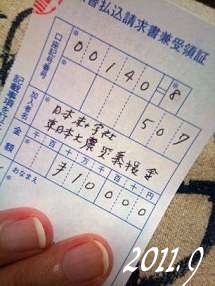 払込請求書兼受領証
口座記号番号
00140 8
507
加入者名
日本赤十字社
東日本大震災義援金
金額
千百十万千百十円
¥10000
おなまえ
記載事項を
2011.9